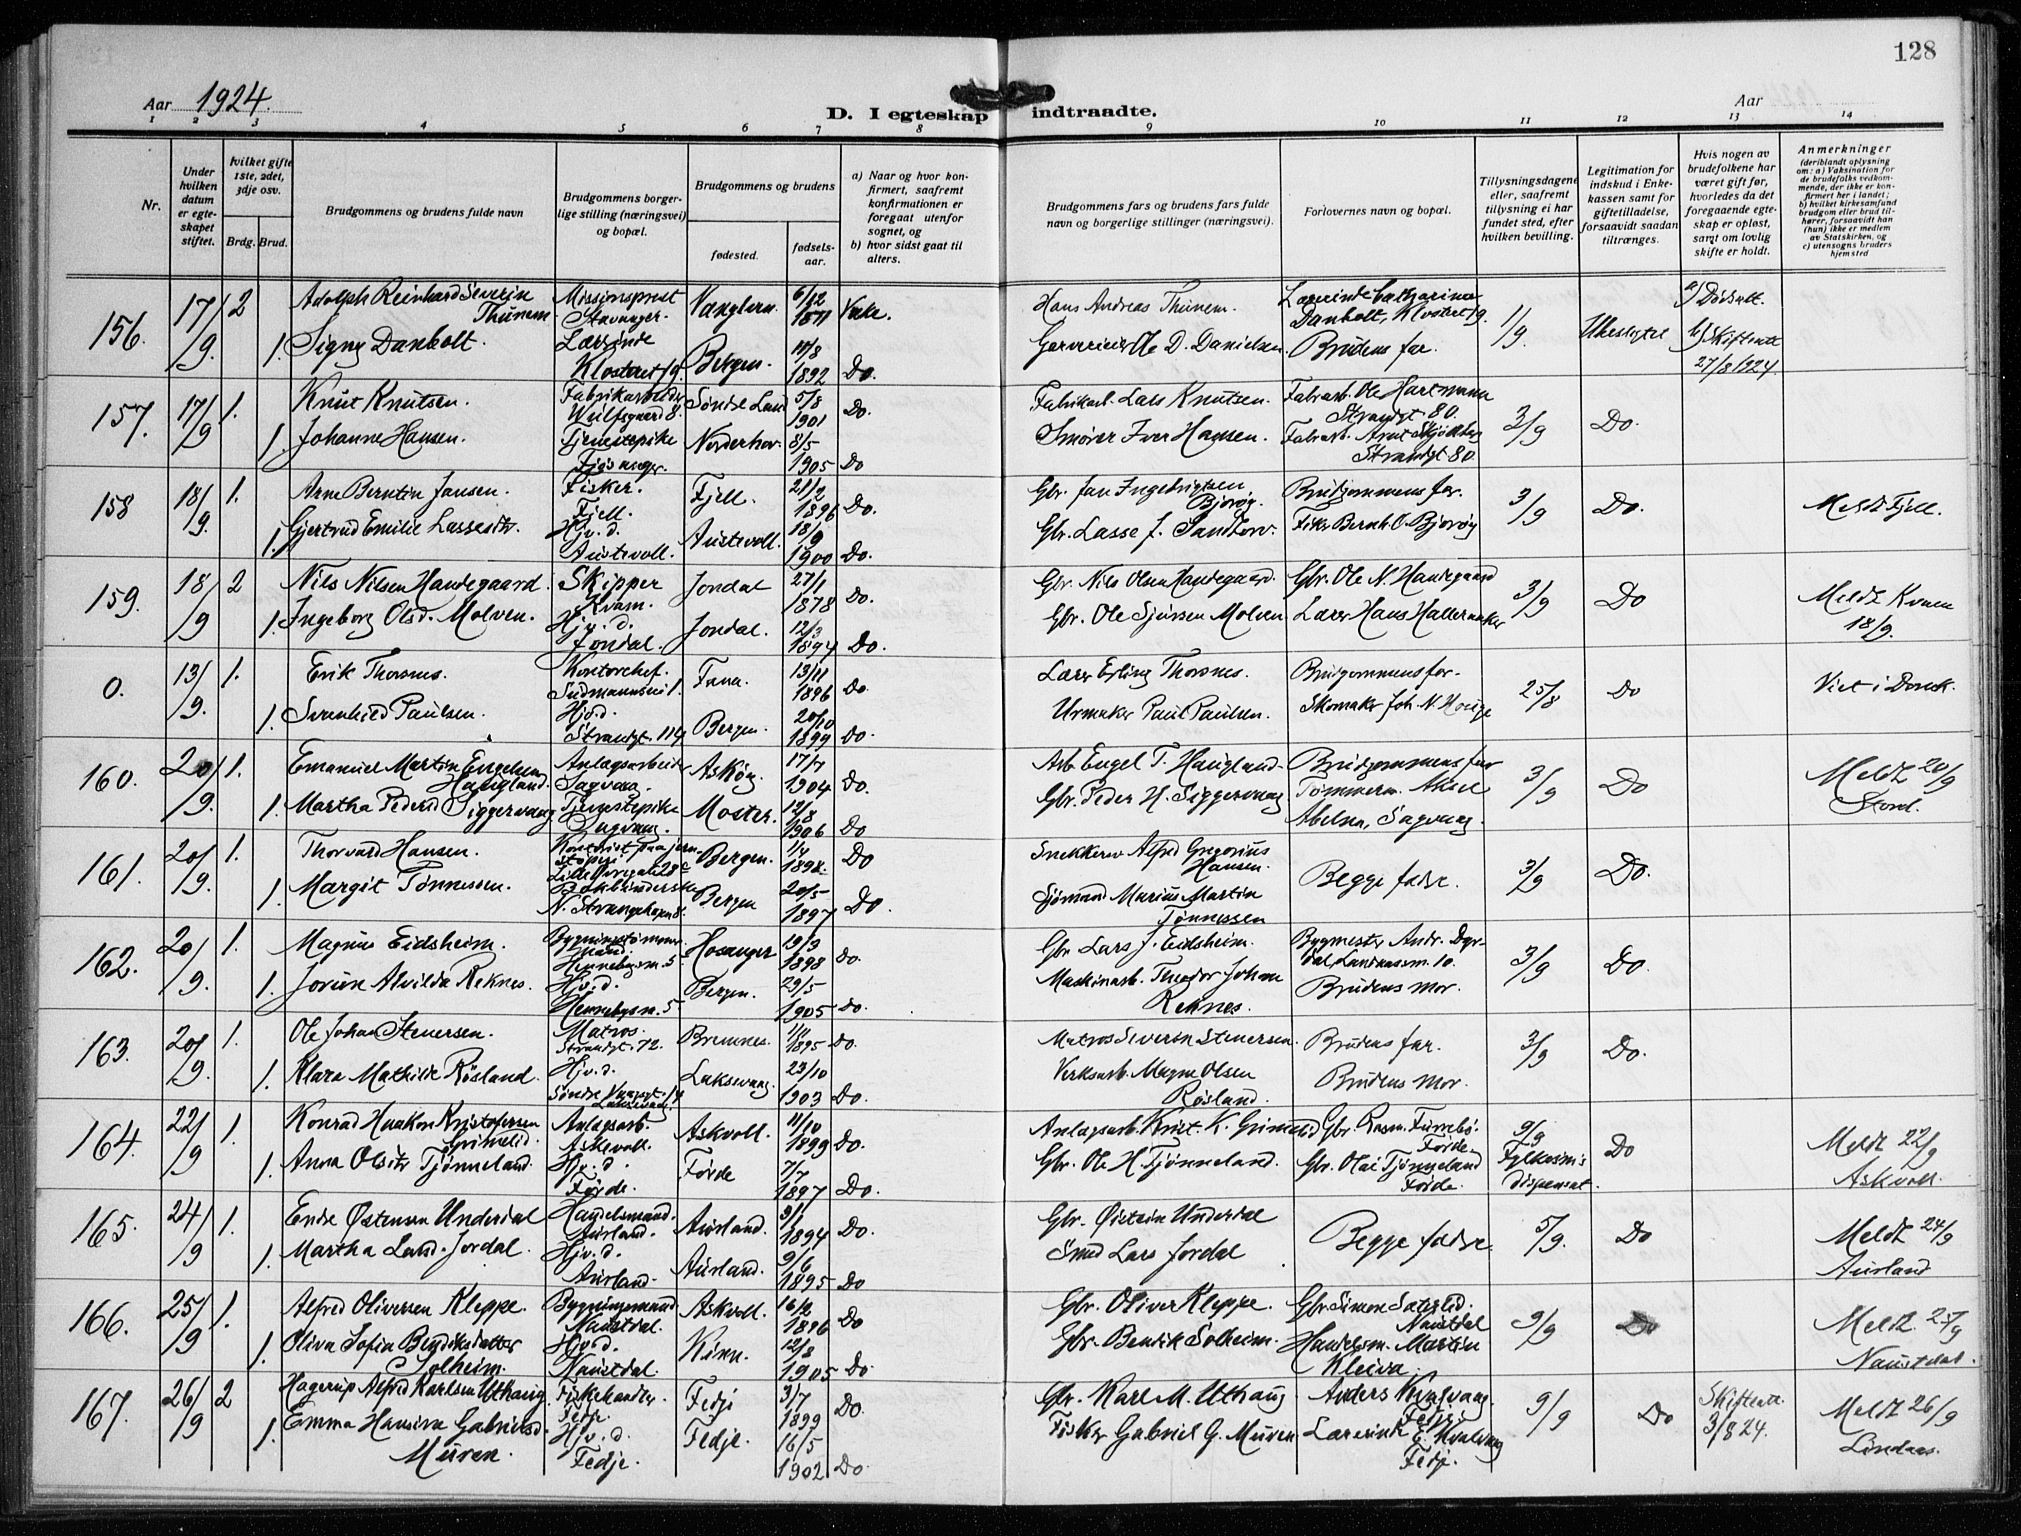 128
Aar 1924.
D. I egteskap indtraadte.
Aar
1 2 3 4 5 6 7 8 9 10 11 12 13 14
Nr.
Under hvilken datum er egteskapet stiftet.
hvilket gifte 1ste, 2det, 3dje osv.
Brdg. Brud.
Brudgommens og brudens fulde navn
Brudgommens borgerlige stilling (næringsvei) og bopæl.
Brudgommens og brudens
fødested.
fødselsaar.
a) Naar og hvor konfirmert, saafremt konfirmationen er foregaat utenfor sognet, og
b) hvor sidst gaat til alters.
Brudgommens fars og brudens fars fulde navn og borgerlige stillinger (næringsvei).
Forlovernes navn og bopæl.
Tillysningsdagene eller, saafremt tillysning ei har fundet sted, efter hvilken bevilling.
Legitimation for indskud i Enkekassen samt for giftetilladelse, forsaavidt saadan tiltrænges.
Hvis nogen av brudefolkene har været gift før, hvorledes da det foregaende egteskap er opløst, samt om lovlig skifte er holdt.
Anmerkninger
(deriblandt oplysning om: a) Vaksination for de brudefolks vedkommende, der ikke er konfirmert her i landet;
b) hvilket kirkesamfund brudgom eller brud tilhører, forsaavidt han (hun) ikke er medlem av Statskirken, og
c) utensogns bruders hjemsted
156. 17/9 2 Adolph Reinhard Severin Thunem Missionsprest Stavanger 6/12 1871 Hans Andreas Thunem. Lærerinde Catharina Danbolt, Klostert 19. 1/9. a) Dødsatt.
1. Signy Danbolt. Lærerinde Bergen. 1892 Do. Ole D. Danielsen Brudens far. b) Skifteatt 27/8 1924.
157. 17/9 1. Knut Knutsen. Fabrikarbeider Søndre Land 5/8 1901 Do. Fabrikarb. Lars Knutsen. Fabrarb. Ole Hartmann Strandgt 80. 3/9 Do.
1. Johanne Hansen. Tjenestepike Norderhov. 8/5 1905 Do Smører Iver Hansen. Strandgt 80
158 18/9. 1. Arne Berntin Jansen. Fisker. Fjell. Fjell. 21/2 1896 Do. Gbr. Jan Ingebrigtsen Bjorøy. Brudgommens far. 3/9 Do. Meldt Fjell.
1. Gjertrud Emilie Lassesdtr. Hjv. d. Austevoll. Austevoll. 18/9 1900 Do. Gbr. Lasse J. Sandtorv. Fisk. Bernh. O. Bjorøy
159. 18/9 2 Nils Nilsen Handegaard. Skipper Kvam. Jondal 27/1 1878 Do. Gbr. Nils Olsen Handegaard. Gbr. Ole N. Handegaard 3/9 Do Meldt Kvam 18/9.
1. Ingeborg Olsd. Molven. Hjv. d. Jondal. Jondal. 12/3 1894 Do. Gbr. Ole Sjursen Molven Lærer Hans Halleraaker
0. 13/9. 1. Erik Thorsnes. Kontorchef. Fana. 13/11 1896 Do Lærer Erling Thorsnes. Brudgommens far. 25/8 Do Viet i Domk.
1. Svenhild Paulsen. Hjv.d. Strandgt. 114 Bergen. 20/10 1899 Do. Urmaker Paul Paulsen. Skomaker Joh. N. Hauge
160. 20/9. 1. Emanuel Martin Engelsen Haugland. Anlægsarbeider Sagvaag. Askøy. 17/7 1904 Do. Arb. Engel T. Haugland. Brudgommens far 3/9 Do Meldt 20/9 Stord.
1. Martha Pedersd Siggervaag Tjenestepike Sagvaag. Moster. 1906 Do Gbr. Peder H. Siggervaag Tømmerm. Abelna, Sagvaag.
161. 20/9. 1. Thorvard Hansen. Bergen. 1/4 Do Snekker Alfred Gregorius Hansen. Begge fædre. 3/9 Do.
1. Margit Tønnessen. N. Strangehagen 8. Bergen 20/5 1897 Do. Sjømand Marius Martin Tønnessen
162. 20/9. 1. Magnus Eidsheim. Hosanger 19/3 1898 Do. Gbr. Lars J. Eidsheim. Bygmester Andr. 3/9 Do.
1. Jorun Alvilda Reknes. Hjv. d. Hennebysm. 5 Bergen. 29/5 1905 Do. Maskinarb. Theodor Johan Reknes. Brudens mor.
163. 20/9. 1. Ole Johan Stenersen. Matros. Strandgt. 72. Bremnes. 1895 Do. Matros Severin Stenersen. Brudens far. 3/9 Do.
1. Klara Mathilde Røsland. Hjv. d. Laksevaag 23/10 1903 Do. Verksarb. Magne Olsen Røsland. Brudens mor.
164. 22/9 1. Konrad Haakon Kristoffersen Grimelid. Anlægsarb. Askevoll. Askvoll. 11/10 1899 Do. Anlægsarb. Krist. K. Grimelid Gbr. Rasm. Furrebø. Førde. 9/9 Fylkesm's dispensat. Do Meldt 22/9 Askvoll.
1. Anna Olsdtr Tjønneland. Hjv. d. Førde. Førde 7/7 1897 Do. Gbr. Ole H. Tjønneland. Gbr. Olai Tjønneland Førde.
165. 24/9 1. Endre Østensen Underdal Handelsmand. Aurland. Aurland. 1894 Do. Gbr. Øistein Underdal Begge fædre. 5/9. Do Meldt 24/9 Aurland
1. Martha Lund Jordal. Hjv. d. Aurland. Aurland. 9/6 1895 Do Smed Lars Jordal
166. 25/9 1. Alfred Oliversen Kleppe. Bygningsmand Naustdal. Askvoll. 16/2 1896 Do Gbr. Oliver Kleppe. Gbr. Simon Naustdal 9/9 Do Meldt 25/9 Naustdal.
1. Oliva Sofia Bendiksdatter Solheim. Hjv.d. Naustdal. Kinn. 12/8 1905 Do Gbr. Bendik Solheim. Handelsm. Martin Kleiva.
167. 26/9 2 Hagerup Alfred Karlsen Uthaug Fiskehandler. Fedje. Fedje 3/7 1899 Do. Gbr. Karl M. Uthaug Anders Kvalvaag Fedje 9/9 Do Skifteatt 3/8 24. Meldt 26/9 Lindaas.
1. Emma Hansine Gabrielsd. Muren. Hjv. d. Fedje. Fedje. 16/5 1902 Do. Fisker Gabriel G. Muren Lærerinde E. Kvalvaag Fedje.